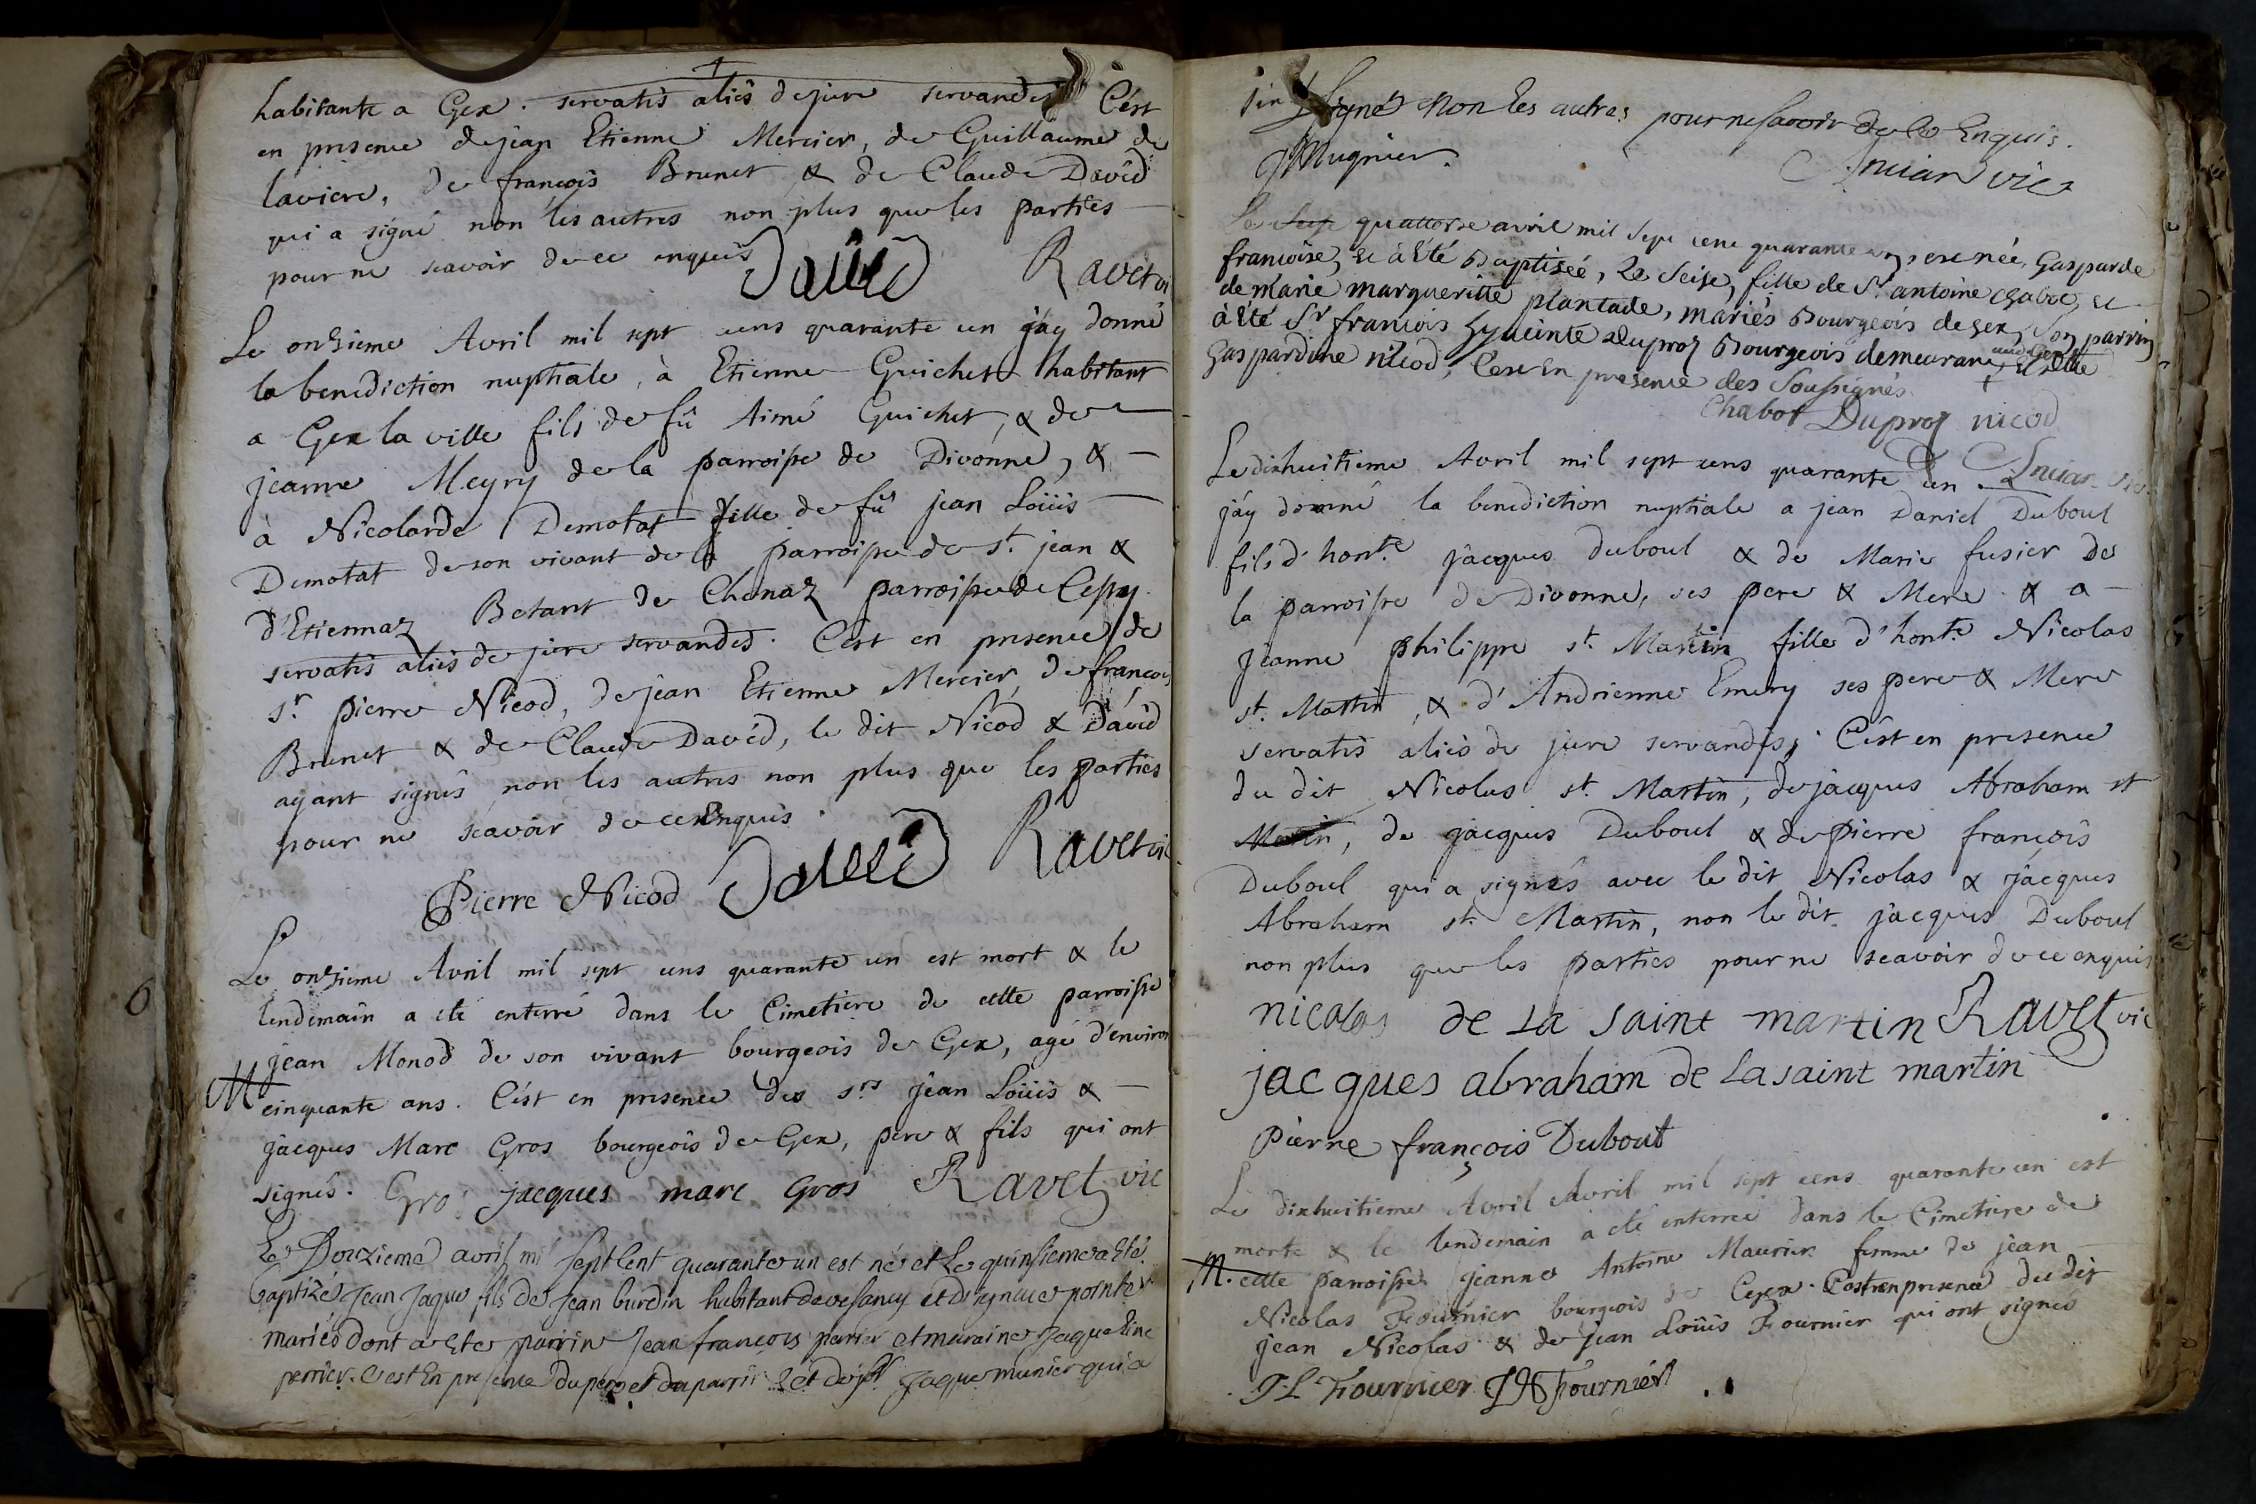 habitante a Gex. servatis aliis de jure servandis C'est
en presence de jean Etienne Mercier, de Guillaume de
laviere, de françois Brunet & de Claude David
qui a signé non les autres non plus que les parties
pour ne scavoir de ce enquis David Ravet vic
Le onzieme Avril mil sept cens quarante un j'ay donné
la benediction nuptiale, à Etienne Guichet habitant
a Gex la ville fils de fû Aimé Guichet, & de
jeanne Meyry de la parroisse de Divonne, &
à Nicolarde Demotat fille de fû jean Loüis
Demotat de son vivant de la parroisse de st. jean &
d'Etiennaz Betant de Chenaz parroisse de Cessy.
servatis aliis de jure servandis. C'est en presence de
sr. pierre Nicod, de jean Etienne Mercier, de françois
Brunet & de Claude David, le dit Nicod & David
ayant signés non les autres non plus que les parties
pour ne scavoir de ce Enquis.
Pierre Nicod David Ravet vic.
Le onzieme Avril mil sept cens quarante un est mort & le
lendemain a eté enterré dans le Cimetiere de cette parroisse
jean Monod de son vivant bourgeois de Gex, agé d'environ
M cinquante ans. C'est en presence des srs jean Loüis &
jacques Marc Gros bourgeois de Gex, pere & fils qui ont
signés. Gro jacques marc Gros Ravet vic
Le Douzieme avril mil sept Cent quarante un est né et Le quinsieme a Eté
Baptizé Jean Jaque fils de Jean burdin habitant de vesancy et pointe
mariés dont a Ete parrin Jean françois perrier et maraine Jaqueline
perrier. C'est En presence du pere et du parrin et de Jaque munier qui a
Signé Non les autres pour ne savoir de ce Enquis.
J Mugnier. Ancian vic
Le quattorse avril mil sept cent quarante un est née, Gasparde
francoise, et à Eté Baptisée, Le seise, fille de Sr. antoine chabot, et
de marie margueritte plantade, mariés Bourgeois de gex, Son parrin
à Eté Sr francois hyacinte Duproz Bourgeois demeurant audit Gex
Gaspardine nicod, C'est En presence des Soussignés.
Chabot Duproz nicod
Ancian vic.
Le dixhuitieme Avril mil sept cens quarante un
j'ay donné la benediction nuptiale a jean Daniel Duboul
fils d'hont.e jacques duboul & de Marie fusier de
la parroisse de Divonne, ses pere & Mere & a
jeanne philippe st. Martin fille d'hont.e Nicolas
st. Martin, & d'Andrienne Emery ses pere & Mere
servatis aliis de jure servandis, C'est en presence
du dit Nicolas st. Martin, de jacques Abraham st
Martin, de jacques Duboul & de pierre françois
Duboul qui a signés avec le dit Nicolas & jacques
Abraham st. Martin, non le dit jacques Duboul
non plus que les parties pour ne scavoir de ce enquis
nicolas de La saint martin Ravet vic
jacques abraham de La saint martin
pierre françois Duboul
Le dixhuitieme Avril Avril mil sept cens quarante un est
morte & le lendemain a eté enterrée dans le Cimetiere de
M. cette parroisse jeanne Antoine Maurier femme de jean
Nicolas Fournier bourgeois de Gex. C'est en presence du dit
jean Nicolas & de jean Loüis Fournier qui ont signés
J. L Fournier J N fournier